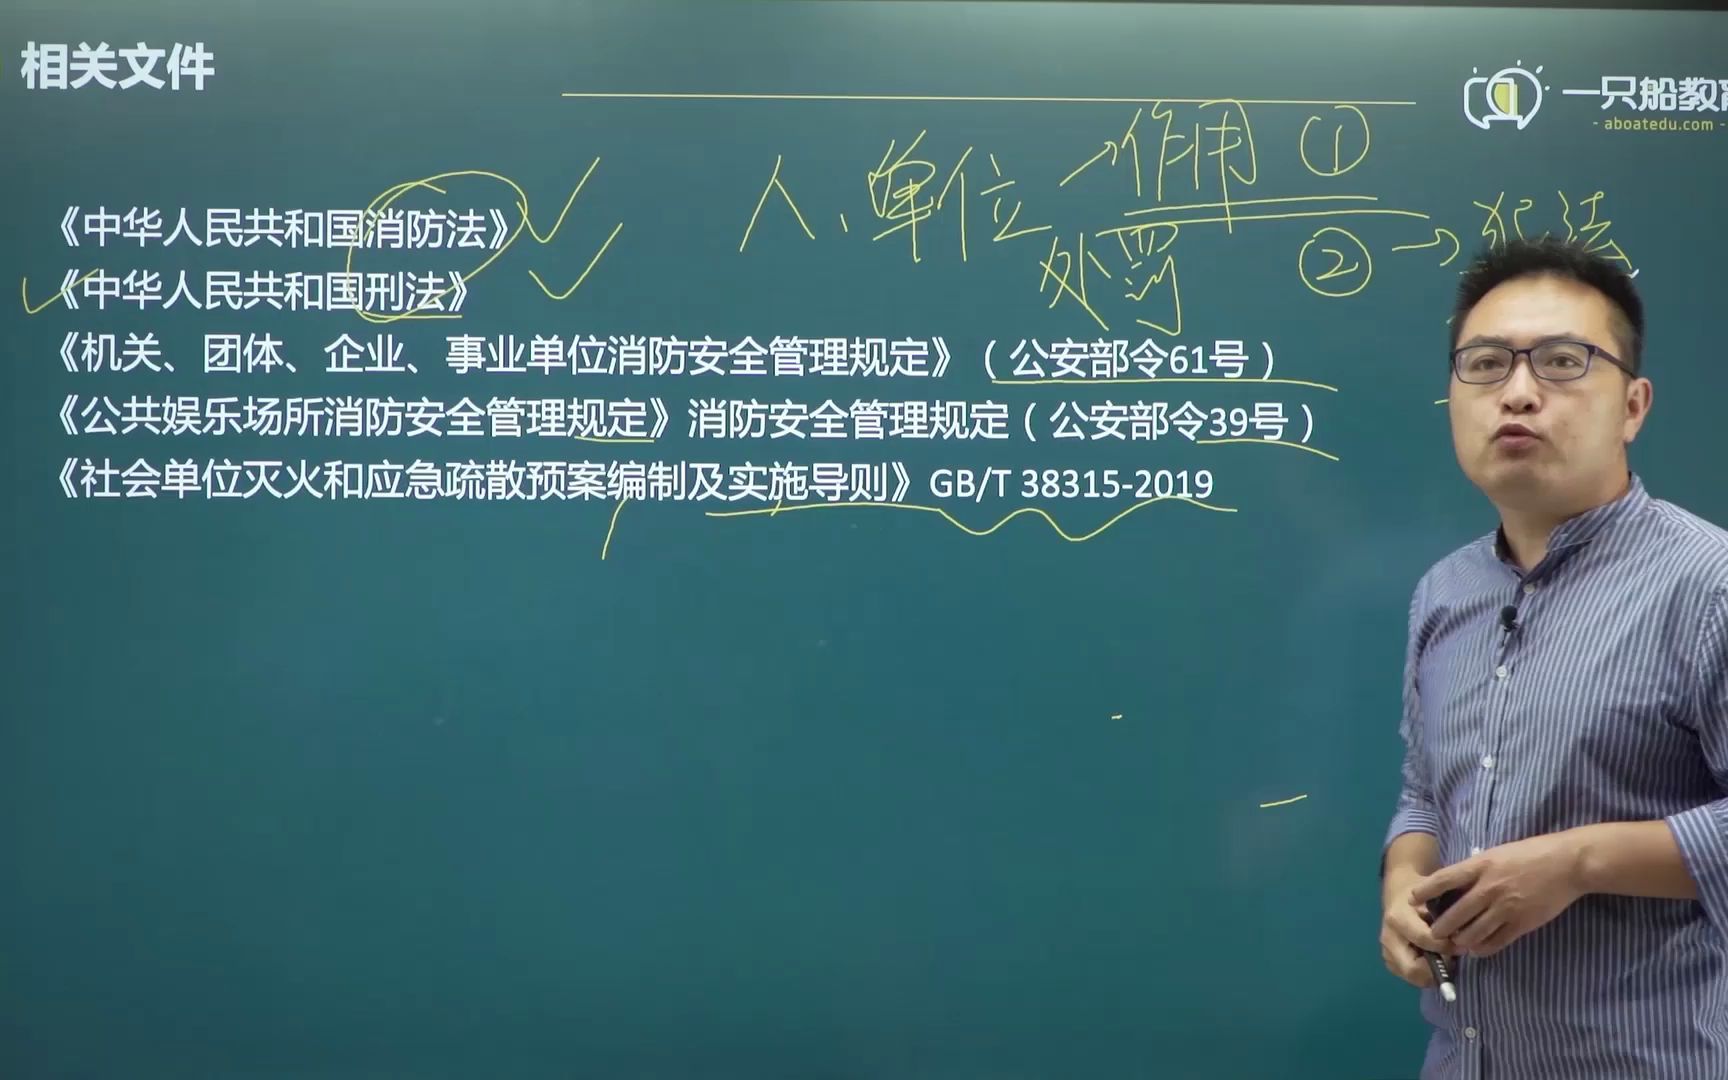 相关文件
一只船教育
- aboatedu.com -
人、单位→作用 ①
处罚 ②→犯法
《中华人民共和国消防法》
《中华人民共和国刑法》
《机关、团体、企业、事业单位消防安全管理规定》（公安部令61号）
《公共娱乐场所消防安全管理规定》消防安全管理规定（公安部令39号）
《社会单位灭火和应急疏散预案编制及实施导则》GB/T 38315-2019